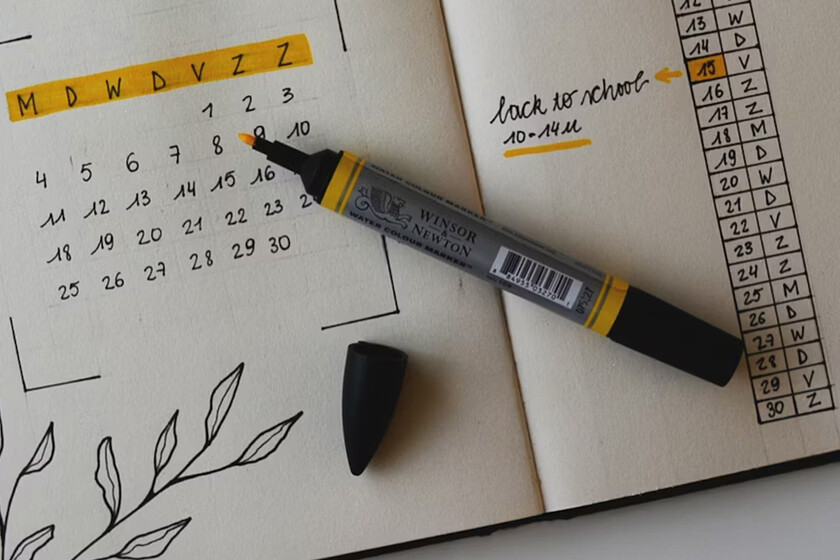 M D W D V Z Z
1 2 3
4 5 6 7 8 9 10
11 12 13 14 15 16
18 19 20 21 22 23
25 26 27 28 29 30
WATER COLOUR MARKER
WINSOR
&
NEWTON
WATER COLOUR MARKER™
back to school
10-14u
13 W
14 D
15 V
16 Z
17 Z
18 M
19 D
20 W
21 D
22 V
23 Z
24 Z
25 M
26 D
27 W
28 D
29 V
30 Z